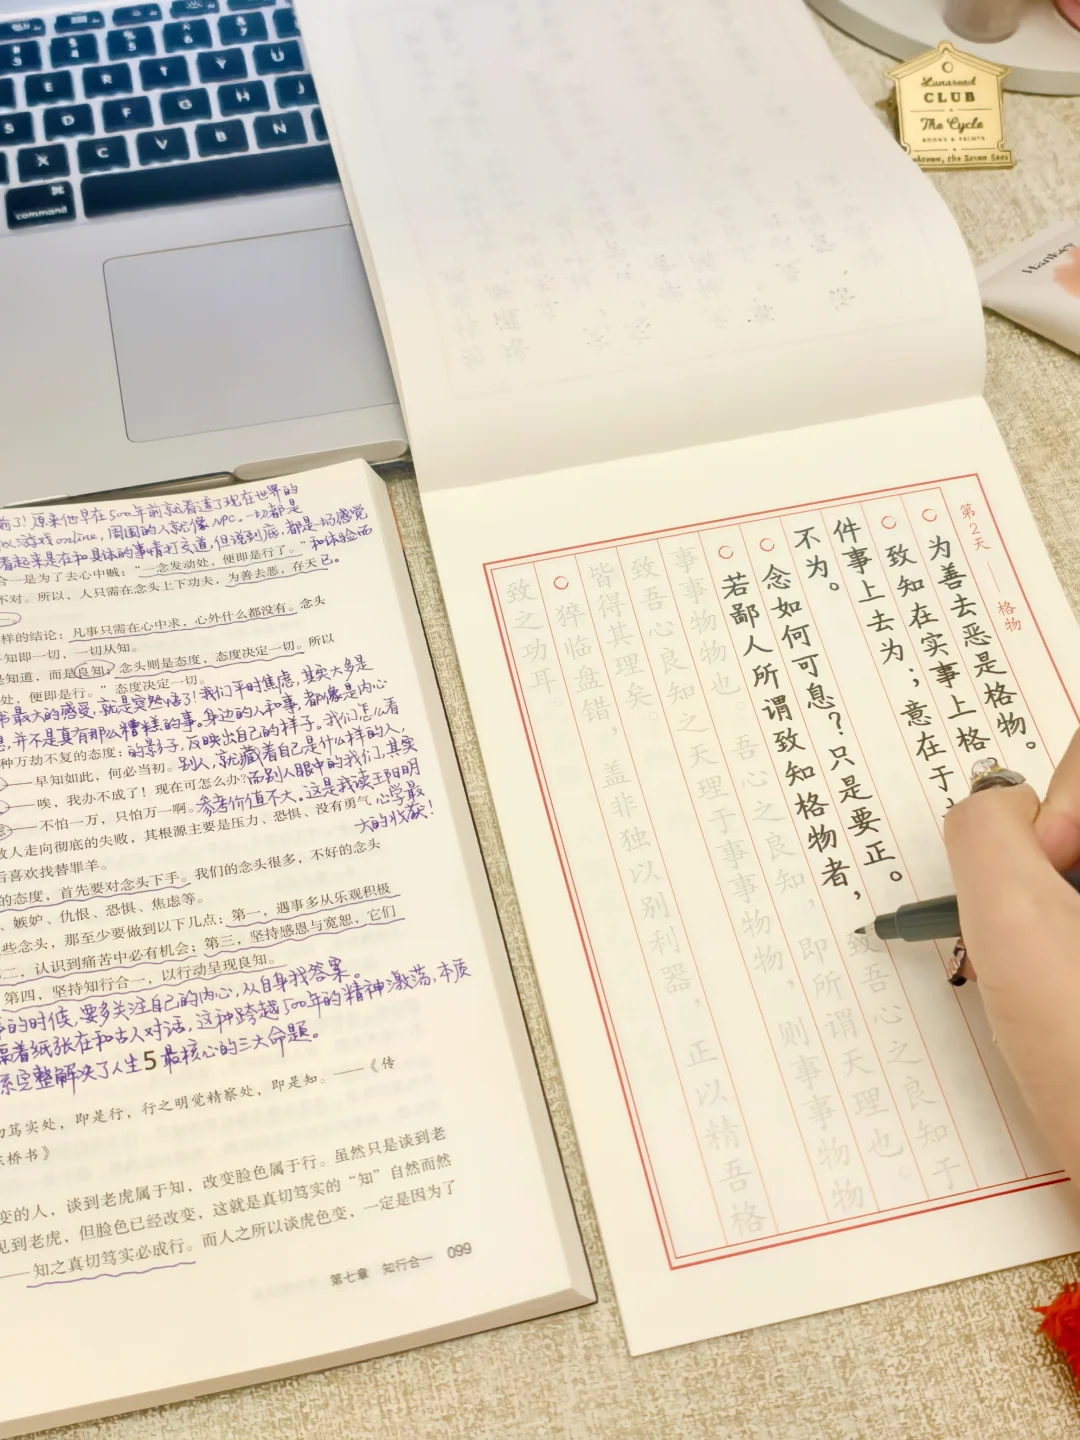 command
Lunaroad
CLUB
The Cycle
BOOKS & PRINTS
前了！原来他早在500年前就看透了现在世界的
游戏online，周围的人就像NPC。一切都是
看起来是在和具体的事情打交道，但说到底，都是一场感觉
合一是为了去心中贼：“一念发动处，便即是行了。”和体验而
不对。所以，人只需在念头上下功夫，为善去恶，存天已。
样的结论：凡事只需在心中求，心外什么都没有。念头
知即一切，一切从知。
是知道，而是良知；念头则是态度，态度决定一切。所以
处，便即是行。”态度决定一切。
书最大的感受，就是突然悟了！我们平时焦虑，其实大多是
想，并不是真有那么糟糕的事。身边的人和事，都像是内心
种万劫不复的态度：的影子，反映出自己的样子。我们怎么看
——早知如此，何必当初。别人，就藏着自己是什么样的人，
——唉，我办不成了！现在可怎么办？而别人眼中的我们，其实
——不怕一万，只怕万一啊。参考价值不大。这是我读王阳明
致人走向彻底的失败，其根源主要是压力、恐惧、没有勇气，心学最
后喜欢找替罪羊。大的收获！
的态度，首先要对念头下手。我们的念头很多，不好的念头
、嫉妒、仇恨、恐惧、焦虑等。
些念头，那至少要做到以下几点：第一，遇事多从乐观积极
二，认识到痛苦中必有机会；第三，坚持感恩与宽恕，它们
第四，坚持知行合一，以行动呈现良知。
的时候，要多关注自己的内心，从自身找答案。
隔着纸张在和古人对话，这种跨越500年的精神激荡，本质
系完整解决了人生5最核心的三大命题。
切笃实处，即是行，行之明觉精察处，即是知。——《传
东桥书》
变的人，谈到老虎属于知，改变脸色属于行。虽然只是谈到老
见到老虎，但脸色已经改变，这就是真切笃实的“知”自然而然
——知之真切笃实必成行。而人之所以谈虎色变，一定是因为了
第七章 知行合一 099
第2天——格物
〇为善去恶是格物。
〇致知在实事上格
件事上去为；意在于
不为。
〇念如何可息？只是要正。
〇若鄙人所谓致知格物者，致吾心之良知于
事事物物也。吾心之良知，即所谓天理也。
致吾心良知之天理于事事物物，则事事物物
皆得其理矣。
〇猝临盘错，盖非独以别利器，正以精吾格
致之功耳。